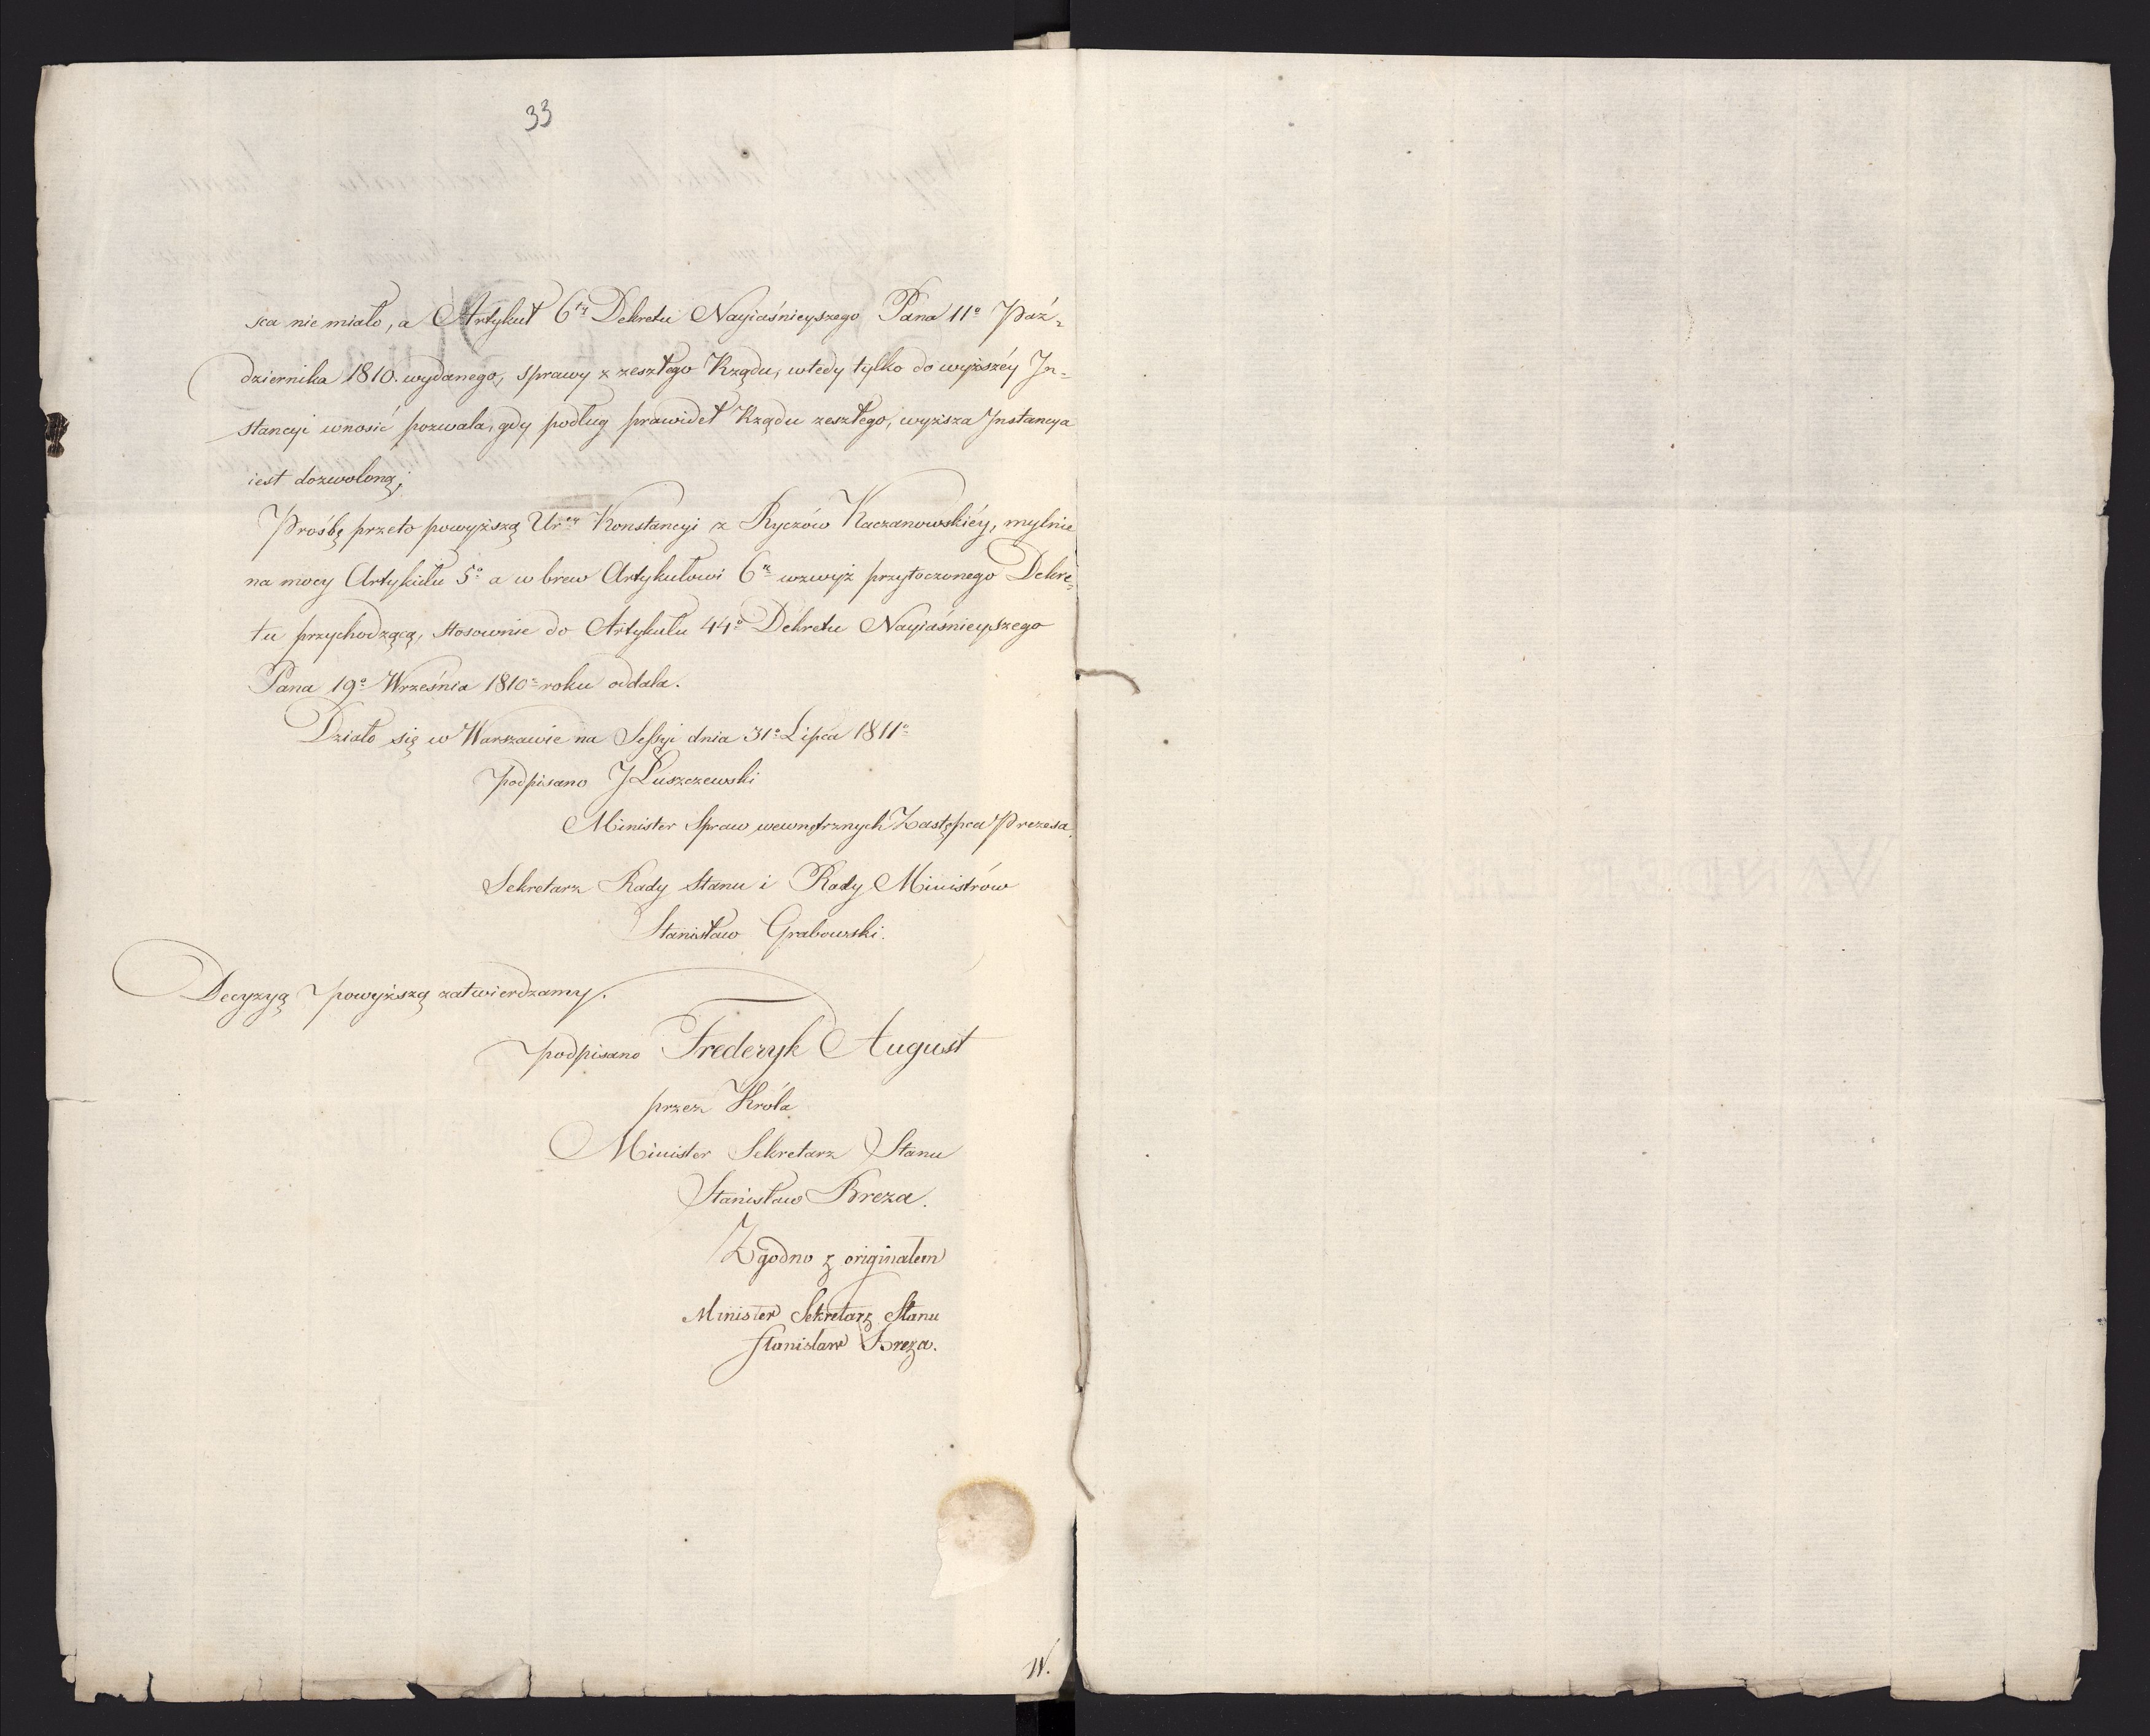 33
sca nie miało, a Artykuł 6ty Dekretu Nayiaśnieyszego Pana 11o Paź=
dziernika 1810. wydanego, sprawy z zeszłego Rządu, wtedy tylko do wyższéy In=
stancyi wnosić pozwala, gdy podług prawideł Rządu zeszłego, wyższa Instancya
iest dozwoloną;
Prośbę przeto powyższą Ur:éy Konstancyi z Ryczów Kaczanowskiéy, mylnie
na mocy Artykułu 5o a w brew Artykułowi 6o wzwyż przytoczonego Dekre=
tu przychodzącą, stosownie do Artykułu 44o Dekretu Nayiaśnieyszego
Pana 19o Września 1810o roku oddala.
Działo się w Warszawie na Sessyi dnia 31o Lipca 1811o
podpisano J Łuszczewski
Minister Spraw wewnętrznych Zastępca Prezesa.
Sekretarz Rady Stanu i Rady Ministrów
Stanisław Grabowski.
Decyzyą powyższą zatwierdzamy.
podpisano Frederyk August
przez Króla
Minister Sekretarz Stanu
Stanisław Breza.
Zgodno z originałem
Minister Sekretarz Stanu
Stanisław Breza.